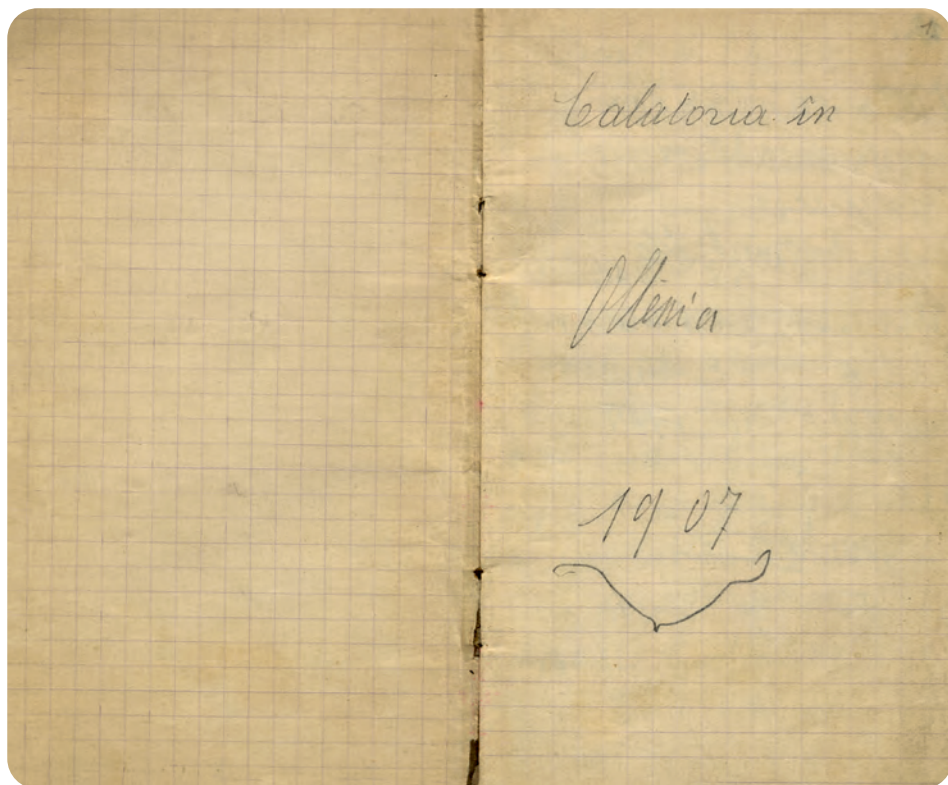 1
Calatoria în
Oltenia
1907